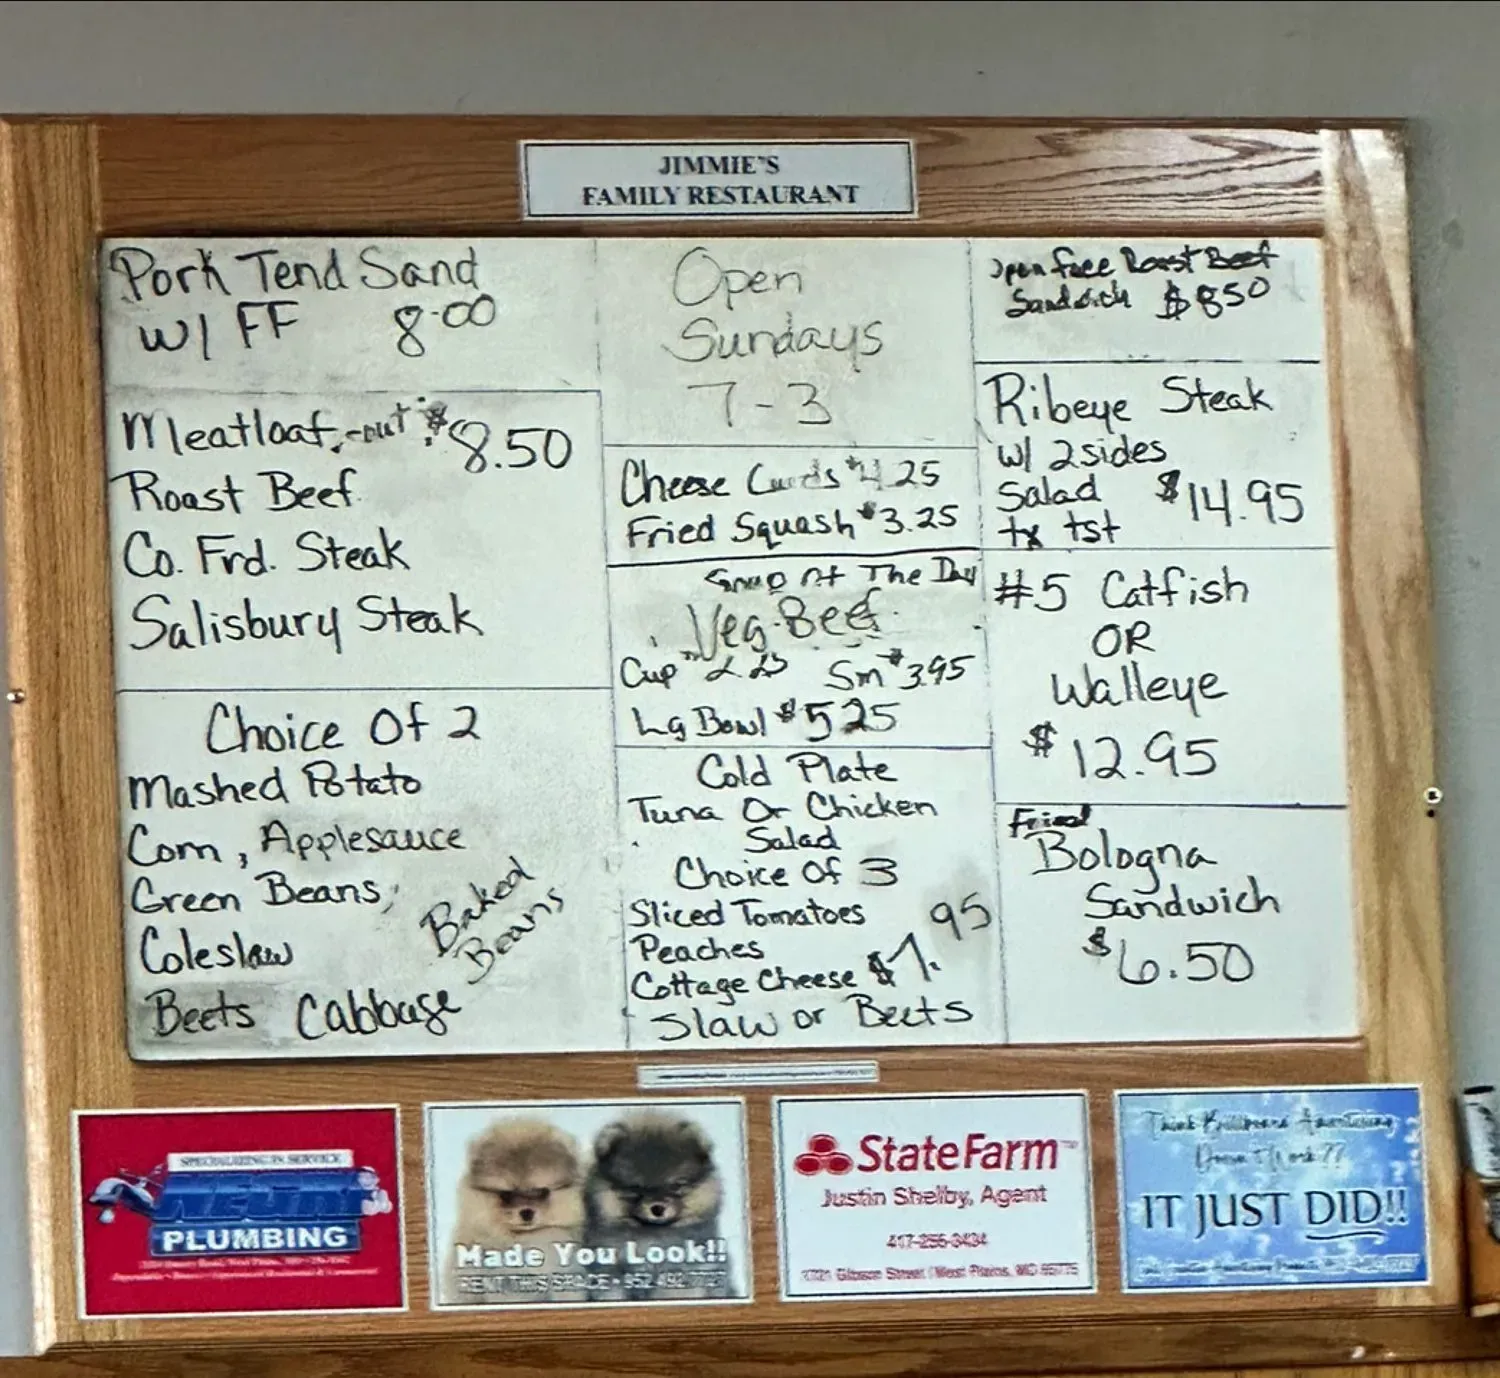 JIMMIE'S
FAMILY RESTAURANT
Pork Tend Sand
W/ FF 8.00
Meatloaf -out $8.50
Roast Beef
Co. Frd. Steak
Salisbury Steak
Choice Of 2
Mashed Potato
Corn, Applesauce
Green Beans,
Baked
Beans
Coleslaw
Beets Cabbage
Open
Sundays
7-3
Cheese Curds $4.25
Fried Squash $3.25
Soup Of The Day
Veg. Beef
Cup Sm $3.95
Lg Bowl $5.25
Cold Plate
Tuna Or Chicken
Salad
Choice Of 3
Sliced Tomatoes
Peaches
Cottage Cheese $7.95
Slaw or Beets
Open face Roast Beef
Sandwich $8.50
Ribeye Steak
w/ 2 sides
Salad $14.95
tx tst
#5 Catfish
OR
Walleye
$12.95
Fried
Bologna
Sandwich
$6.50
SPECIALIZING IN SERVICE
PLUMBING
Made You Look!!
RENT THIS SPACE
StateFarm™
Justin Shelby, Agent
417-256-3434
Gibson Street West Plains, MO 65775
Think Billboard Advertising
Doesn't Work??
IT JUST DID!!